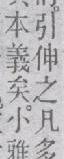 引伸之凡多
本義矣。小雅